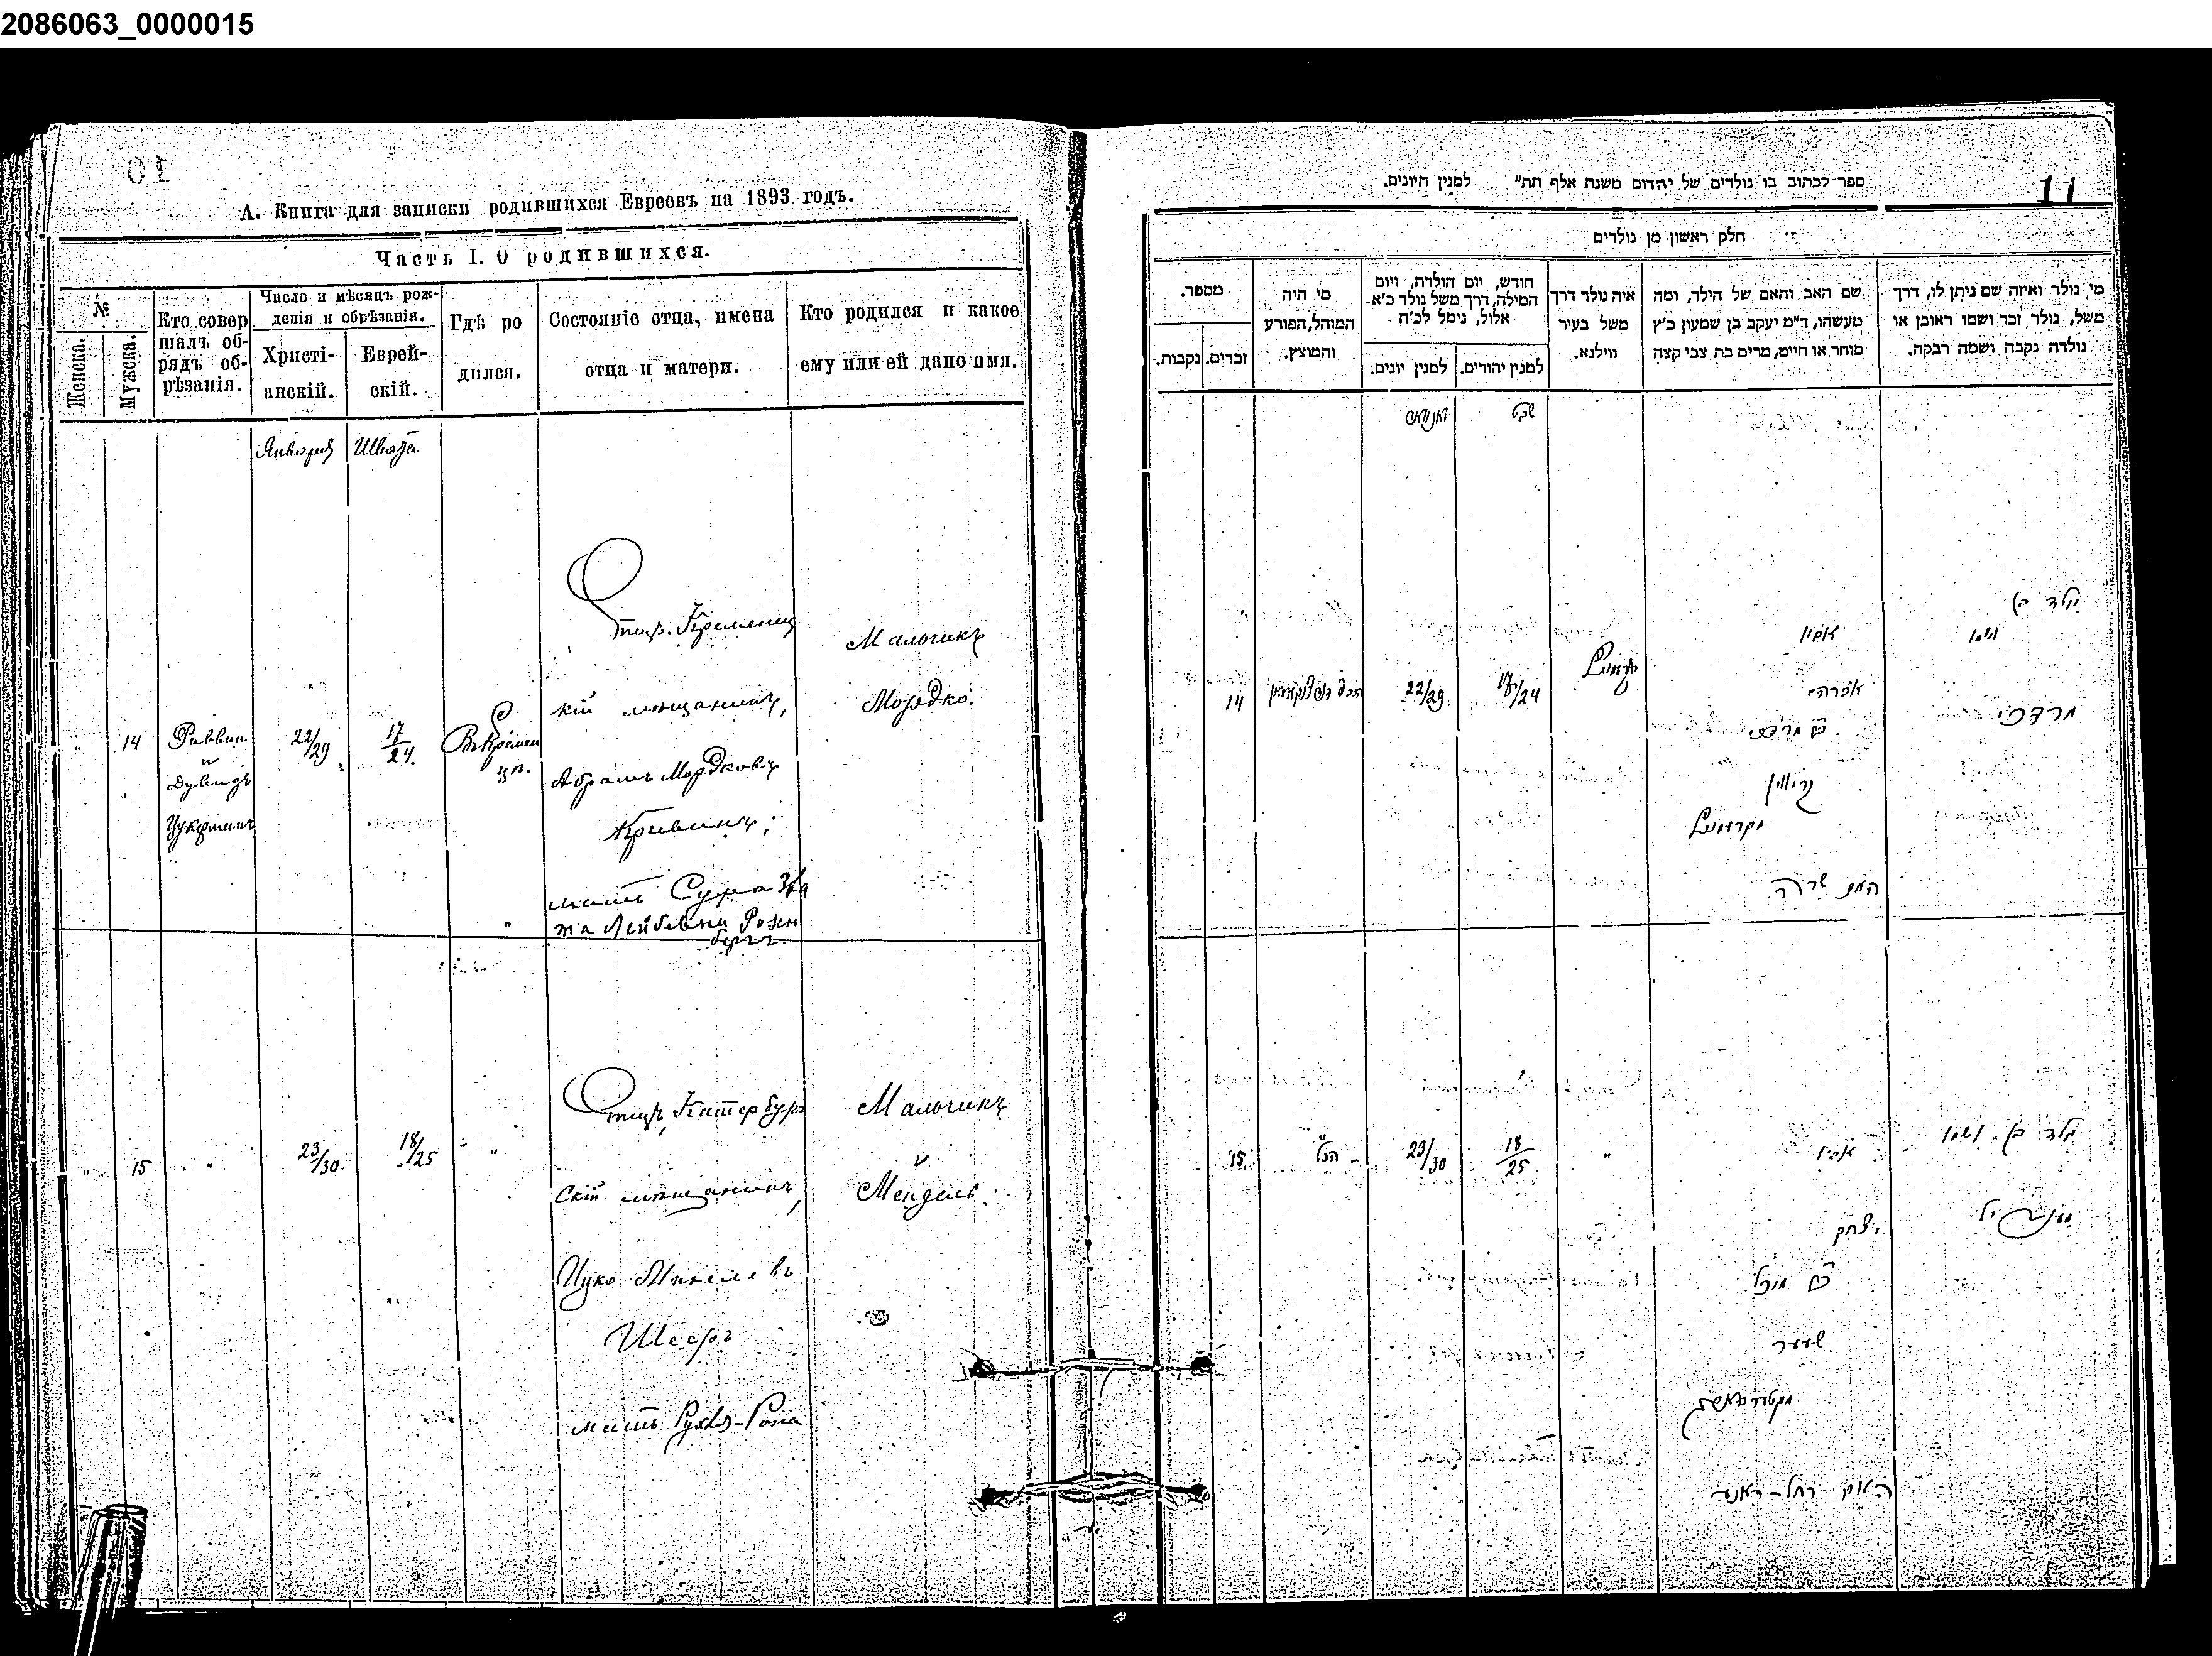 2086063_0000015
10
А. Книга для записки родившихся Евреевъ на 1893 годъ.
Часть I. О родившихся.
№
Женска.
Мужеска.
Кто совер
шалъ об-
рядъ об-
рѣзанія.
Число и мѣсяцъ рож-
денія и обрѣзанія.
Христі-
анскій.
Еврей-
скій.
Гдѣ ро
дился.
Состояніе отца, имена
отца и матери.
Кто родился и какое
ему или ей дано имя.
Января
Швата
14
Раввин
и
Цукерманъ
22/29
17/24.
Въ Кремен
цѣ.
Отецъ. Кременец
кій мѣщанинъ,
Абрамъ Мордковъ
Кривинъ;
мать Сура
та Лейбовна Розен
бергъ.
Мальчикъ
Мордко.
"
15
"
23/30.
18/25
"
Отецъ, Катербург
скій мѣщанинъ,
Ицко
Шееръ
мать Рухля-Роза
Мальчикъ
Мендель.
11
ספר לכתוב בו נולדים של יהדום משנת אלף תת" למנין היונים.
חלק ראשון מן נולדים
מספר.
זכרים.
נקבות.
מי היה
המוהל, הפורע
והמוצץ.
חודש, יום הולדת, ויום
המילה, דרך משל נולד כ'א
אלול, נימל לכ'ח
למנין יונים.
למנין יהודים.
איה נולד דרך
משל בעיר
ווילנא.
שם האב והאם של הילד, ומה
מעשהו, ד"מ יעקב בן שמעון כ'ץ
סוחר או חייט, מרים בת צבי קצה
מי נולד ואיזה שם ניתן לו, דרך
משל, נולד זכר ושמו ראובן או
נולדה נקבה ושמה רבקה.
יאנואר
שבט
14
22/29
17/24
קרעמניץ
אביו
אברהם
מרדכי
קריווין
מקרעמניץ
האם שרה
ילד בן
ושמו
מרדכי
15
הנ"ל
23/30
18/25
"
אביו
יצחק
שער
האם רחל-ראזע
ילד בן ושמו
מענדיל